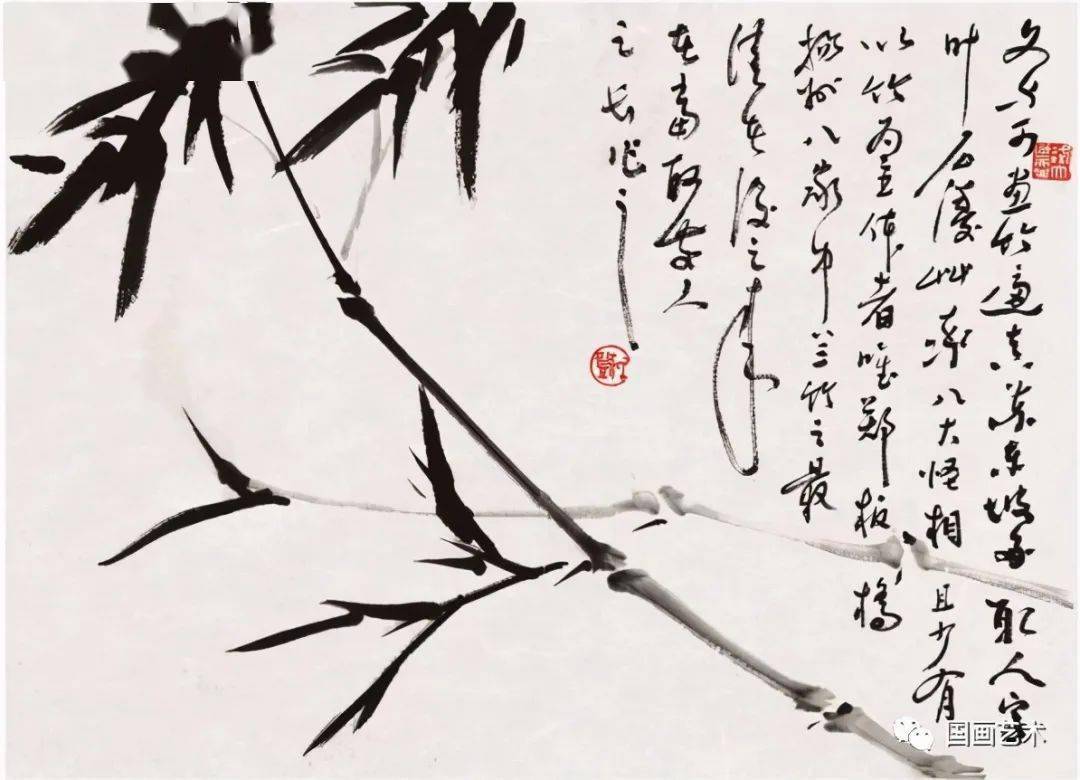 文与可画竹逼真苏东坡 取人家
叶石涛草率八大怪相且少有
以竹为主体者唯郑板桥
扬州八家中兰竹之最
清者后之来
在画取前人
之长作之
国画艺术